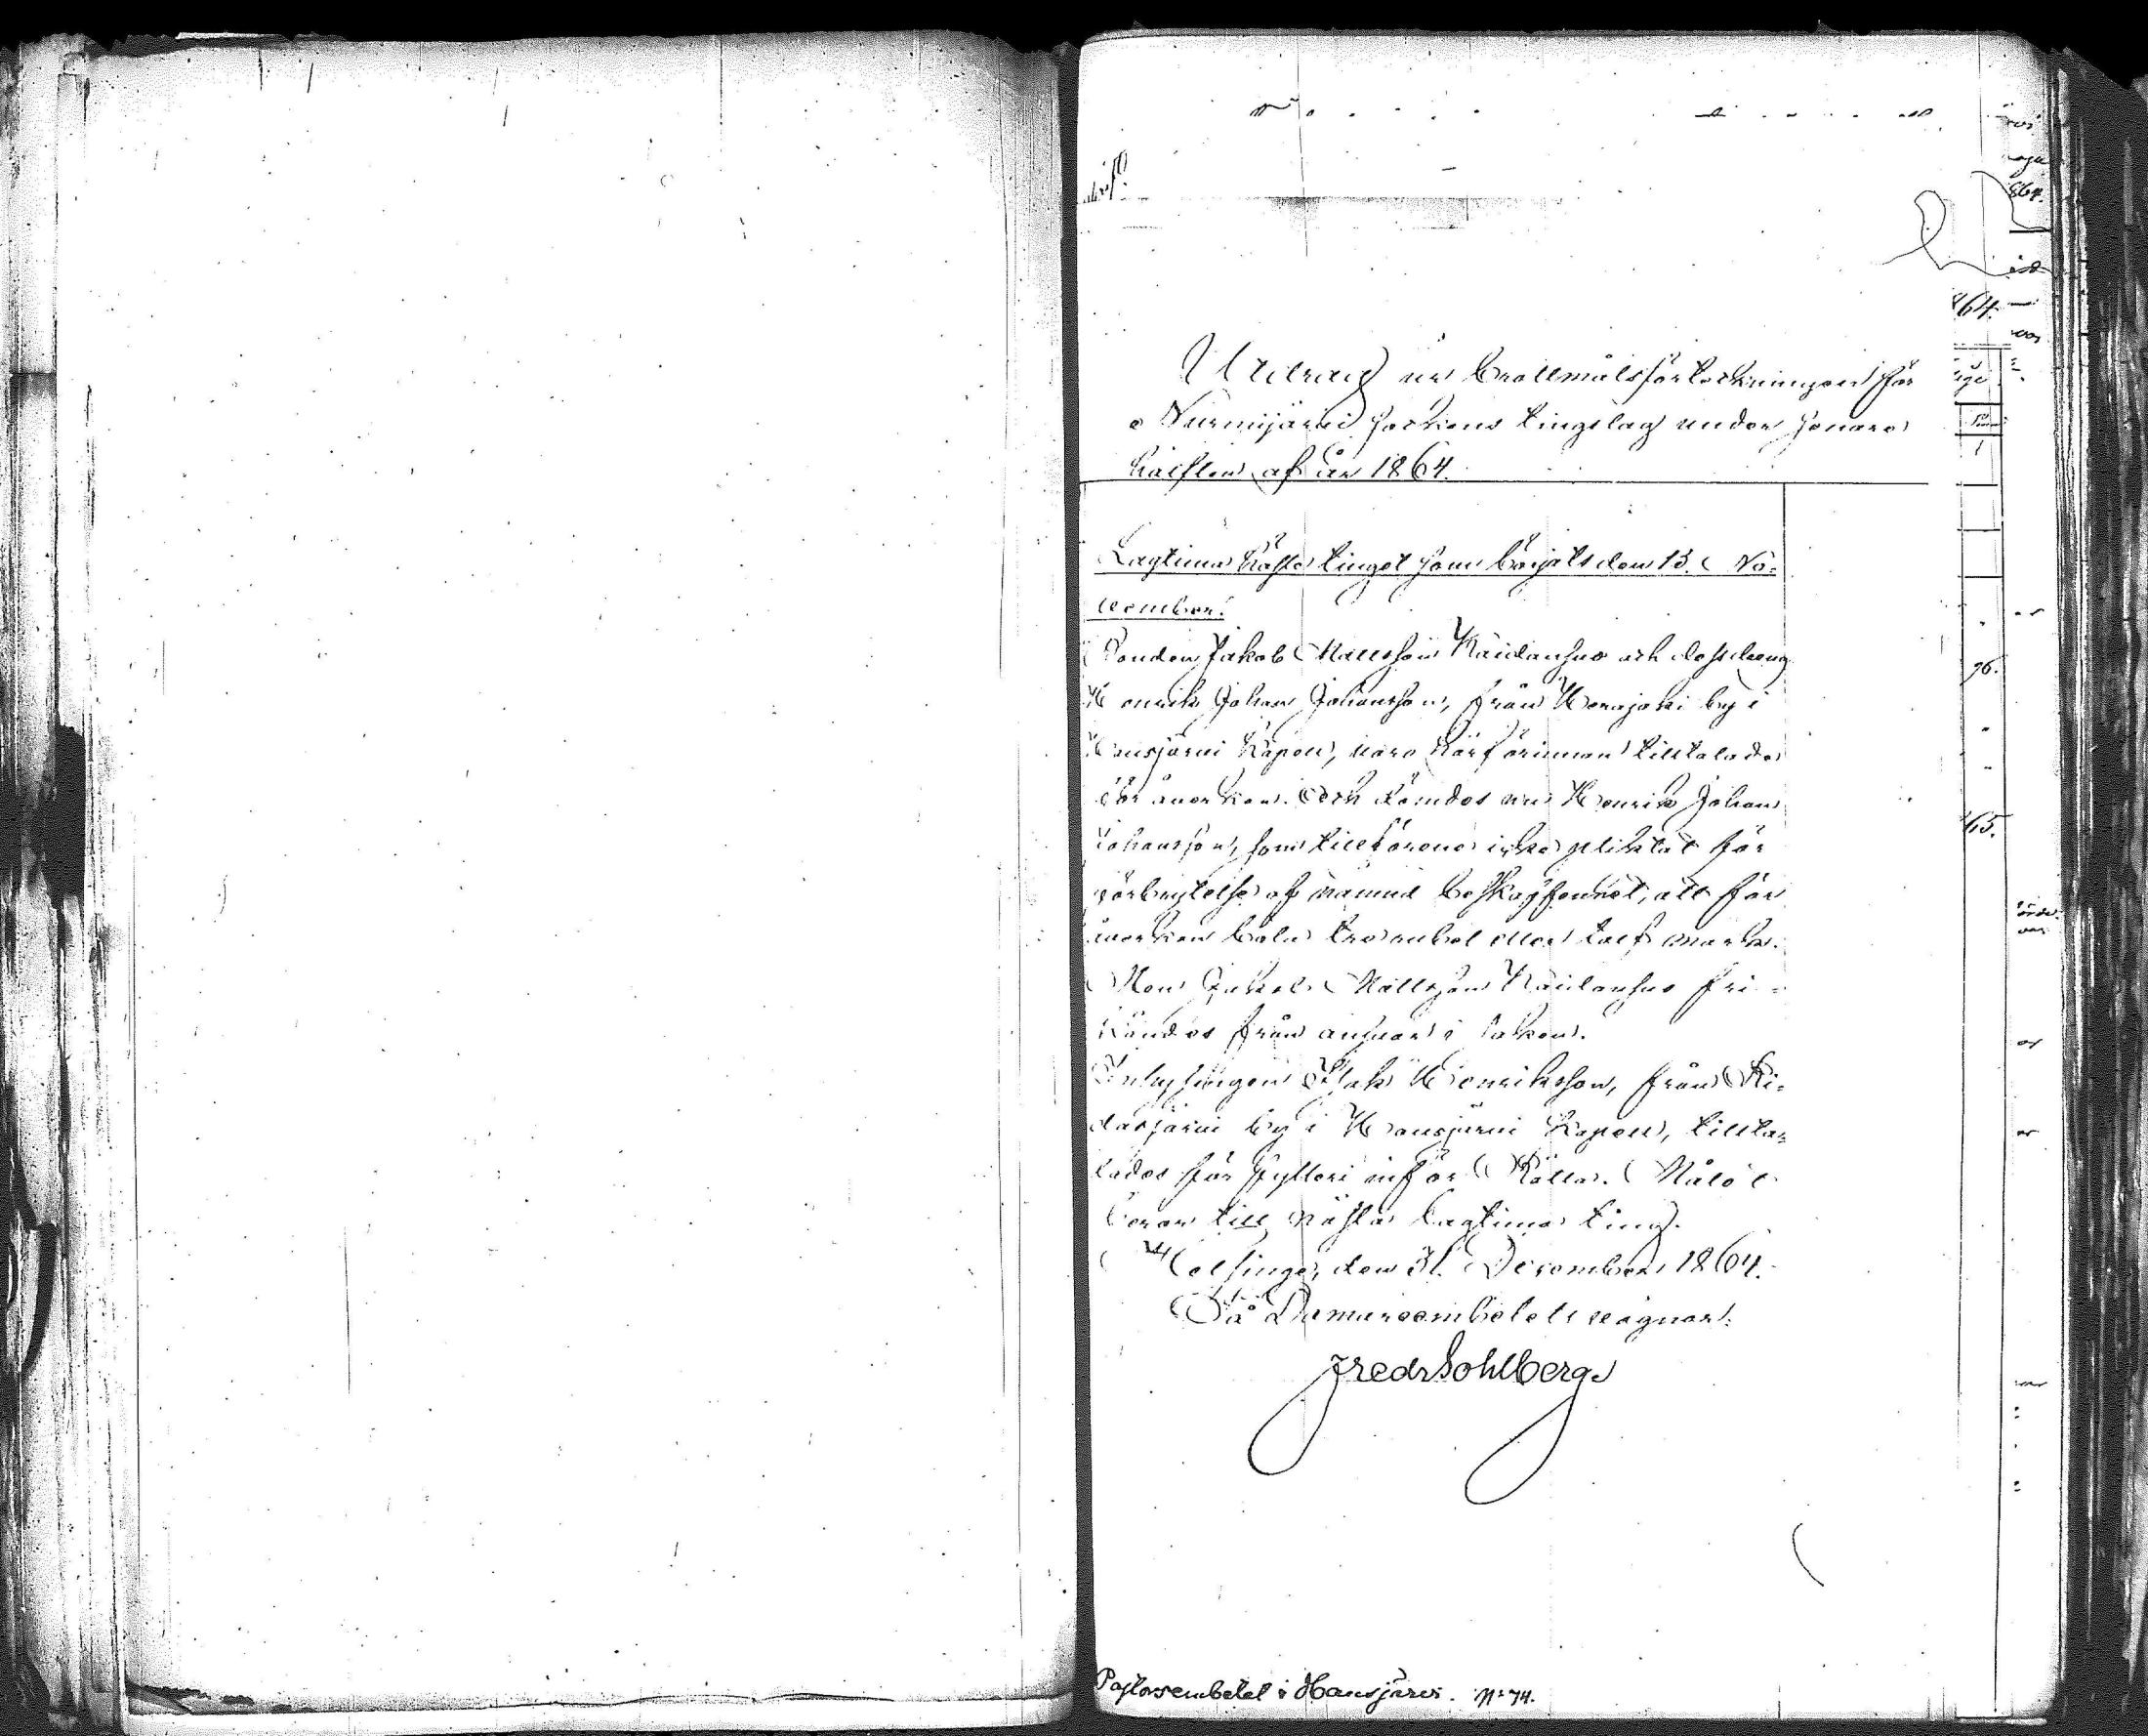 Utdrag ur Brottmålsförteckningen för
Nurmijärvi sockens tingslag under senare
hälften af år 1864.
Lagtima Höste tinget som börjats den 15. No-
vember.
Bonden Jakob Mattsson Kaidansuo och dess dreng
Henrik Johan Johansson, från Herajoki by i
Hausjärvi Kapell, voro härförinnan tilltalade
för åverkan. Och dömdes nu Henrik Johan
Johansson, som tillförene icke pliktat för
förbrytelse af nämnd beskaffenhet, att för
åverkan böta tre rubel eller tolf mark.
Men Jakob Mattsson Kaidansuo fri-
kändes från ansvar i saken.
Inhysingen Isak Henriksson, från Ri-
dasjärvi by i Hausjärvi Kapell, tillta-
lades för fylleri inför Rätta. Målet
beror till nästa lagtima ting.
Helsinge, den 31. December 1864.
På Domareembetets vägnar:
Fredr Sohlberg
Pastorsembetet i Hausjärvi. No 74.